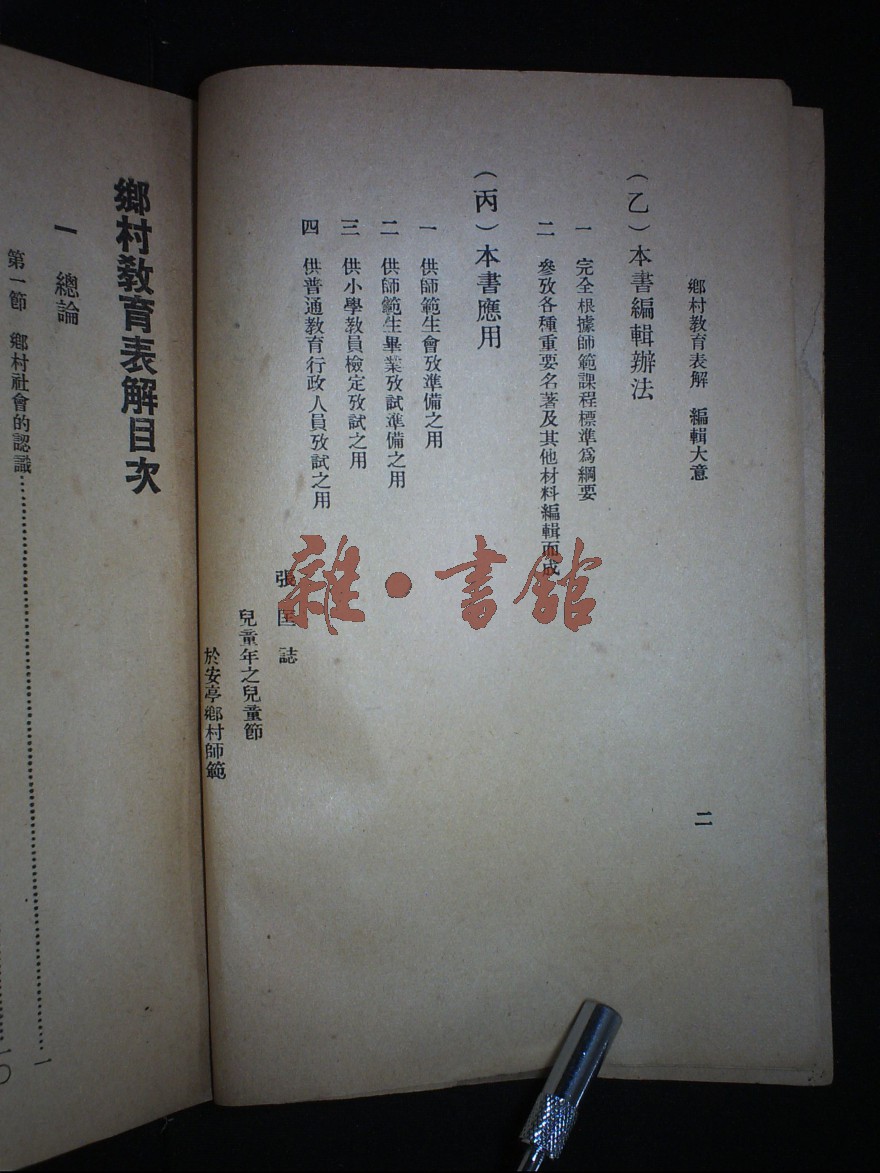 鄉村教育表解 編輯大意
二
(乙)本書編輯辦法
一 完全根據師範課程標準爲綱要
二 參攷各種重要名著及其他材料編輯而成
(丙)本書應用
一 供師範生會攷準備之用
二 供師範生畢業攷試準備之用
三 供小學教員檢定攷試之用
四 供普通教育行政人員攷試之用
張匡誌
兒童年之兒童節
於安亭鄉村師範
鄉村教育表解目次
一 總論
第一節 鄉村社會的認識……一
一〇
雜·書館